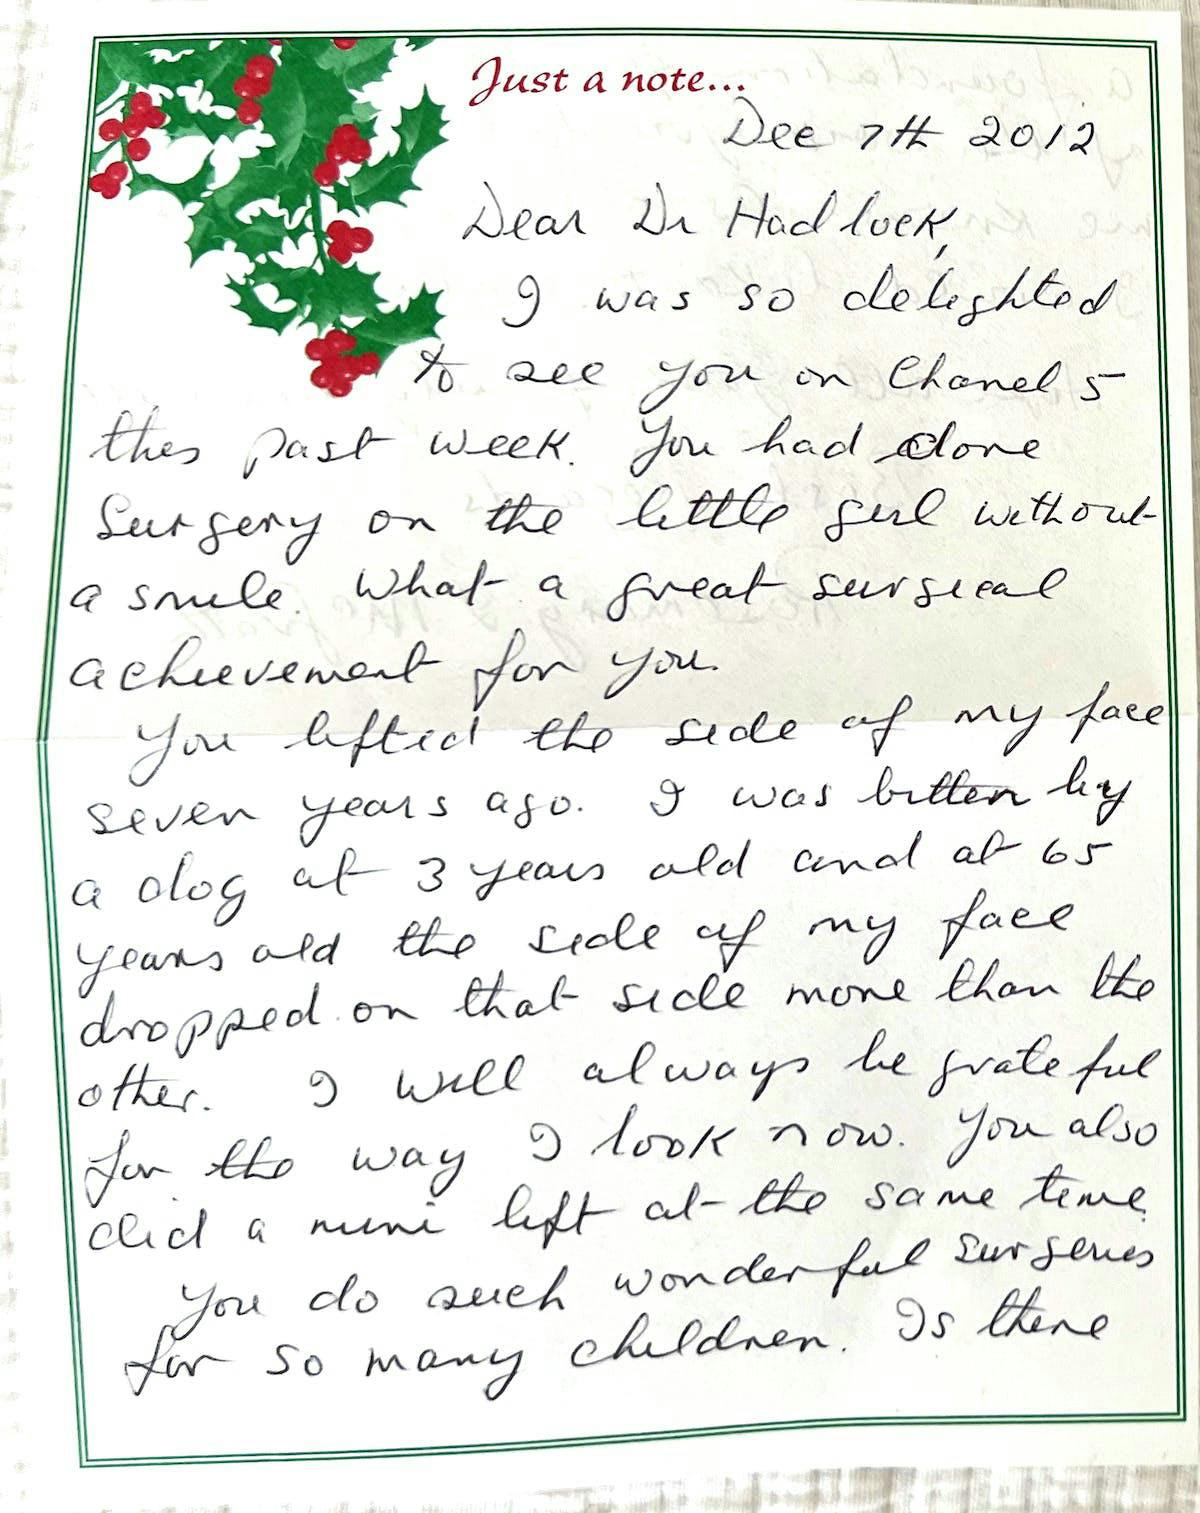 Just a note...
Dec 7th 2012
Dear Dr Hadlock,
I was so delighted
to see you on Chanel 5
this past week. You had done
Surgery on the little girl without
a smile. What a great surgical
achievement for you.
You lifted the side of my face
seven years ago. I was bitten by
a dog at 3 years old and at 65
years old the side of my face
dropped on that side more than the
other. I will always be grateful
for the way I look now. You also
did a mini lift at the same time.
You do such wonderful surgeries
for so many children. Is there